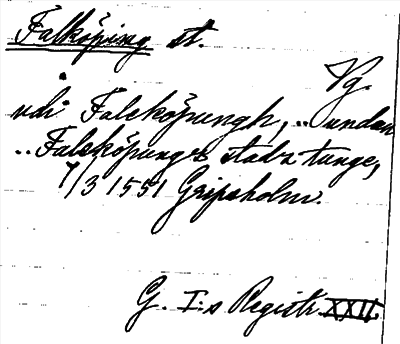 Falköping st.
Vg
udi Faleköpungh, .. undan
.. Faleköpungs stadz tunge,
7/3 1551 Gripsholm.
G. I:s Registr. XXII.